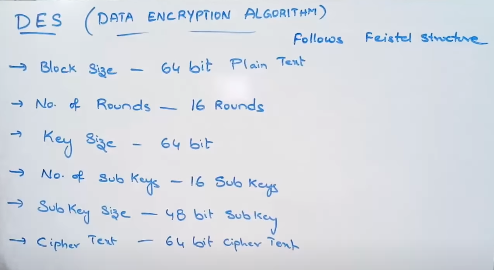 DES (DATA ENCRYPTION ALGORITHM)
Follows Feistel Structure
→ Block Size - 64 bit Plain Text
→ No. of Rounds - 16 Rounds
→ Key Size - 64 bit
→ No. of Sub Keys - 16 Sub Keys
→ Sub Key Size - 48 bit Subkey
→ Cipher Text - 64 bit Cipher Text